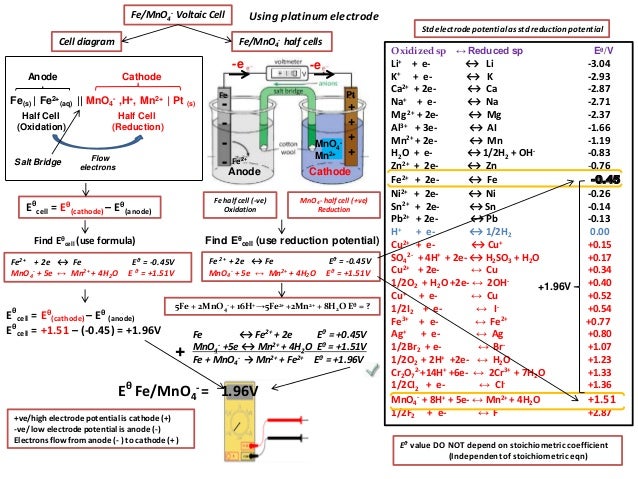 Fe/MnO₄⁻ Voltaic Cell
Using platinum electrode
Cell diagram
Fe/MnO₄⁻ half cells
Anode
Cathode
Fe(s) | Fe²⁺(aq) || MnO₄⁻ ,H⁺, Mn²⁺ | Pt (s)
Half Cell
(Oxidation)
Half Cell
(Reduction)
Salt Bridge
Flow
electrons
E^θcell = E^θ(cathode) – E^θ(anode)
Find E^θcell (use formula)
Fe²⁺ + 2e ↔ Fe E^θ = -0.45V
MnO₄⁻ + 5e ↔ Mn²⁺ + 4H₂O E^θ = +1.51V
E^θcell = E^θ(cathode) – E^θ(anode)
E^θcell = +1.51 – (-0.45) = +1.96V
-e
-e
voltmeter
anions
salt bridge
Fe
Pt
cotton
wool
Fe²⁺
MnO₄⁻
Mn²⁺
Anode
Cathode
Fe half cell (-ve)
Oxidation
MnO₄⁻ half cell (+ve)
Reduction
Find E^θcell (use reduction potential)
Fe²⁺ + 2e ↔ Fe E^θ = -0.45V
MnO₄⁻ + 5e ↔ Mn²⁺ + 4H₂O E^θ = +1.51V
5Fe + 2MnO₄⁻ + 16H⁺→5Fe²⁺+2Mn²⁺ + 8H₂O E^θ = ?
Fe ↔ Fe²⁺ + 2e E^θ = +0.45V
MnO₄⁻ +5e ↔ Mn²⁺ + 4H₂O E^θ = +1.51V
+
Fe + MnO₄⁻ → Mn²⁺ + Fe²⁺ E^θ = +1.96V
E^θ Fe/MnO₄⁻ = 1.96V
+ve/high electrode potential is cathode (+)
-ve/ low electrode potential is anode (-)
Electrons flow from anode (- ) to cathode (+ )
Std electrode potential as std reduction potential
Oxidized sp ↔ Reduced sp E^θ/V
Li⁺ + e- ↔ Li -3.04
K⁺ + e- ↔ K -2.93
Ca²⁺ + 2e- ↔ Ca -2.87
Na⁺ + e- ↔ Na -2.71
Mg²⁺ + 2e- ↔ Mg -2.37
Al³⁺ + 3e- ↔ Al -1.66
Mn²⁺ + 2e- ↔ Mn -1.19
H₂O + e- ↔ 1/2H₂ + OH⁻ -0.83
Zn²⁺ + 2e- ↔ Zn -0.76
Fe²⁺ + 2e- ↔ Fe -0.45
Ni²⁺ + 2e- ↔ Ni -0.26
Sn²⁺ + 2e- ↔ Sn -0.14
Pb²⁺ + 2e- ↔ Pb -0.13
H⁺ + e- ↔ 1/2H₂ 0.00
Cu²⁺ + e- ↔ Cu⁺ +0.15
SO₄²⁻ + 4H⁺ + 2e- ↔ H₂SO₃ + H₂O +0.17
Cu²⁺ + 2e- ↔ Cu +0.34
1/2O₂ + H₂O +2e- ↔ 2OH⁻ +0.40
Cu⁺ + e- ↔ Cu +0.52
1/2I₂ + e- ↔ I⁻ +0.54
Fe³⁺ + e- ↔ Fe²⁺ +0.77
Ag⁺ + e- ↔ Ag +0.80
1/2Br₂ + e- ↔ Br⁻ +1.07
1/2O₂ + 2H⁺ +2e- ↔ H₂O +1.23
Cr₂O₇²⁻+14H⁺ +6e- ↔ 2Cr³⁺ + 7H₂O +1.33
1/2Cl₂ + e- ↔ Cl⁻ +1.36
MnO₄⁻ + 8H⁺ + 5e- ↔ Mn²⁺ + 4H₂O +1.51
1/2F₂ + e- ↔ F⁻ +2.87
+1.96V
E^θ value DO NOT depend on stoichiometric coefficient
(Independent of stoichiometric eqn)